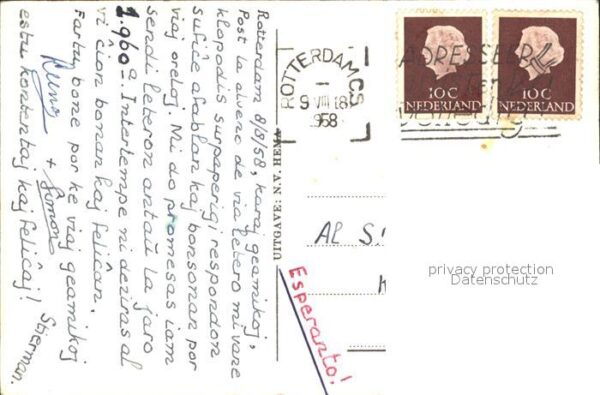 Rotterdam 8/8/58, karaj geamikoj,
Post la alveno de via letero mi vane
klopodis surpaperigi respondon
sufiĉe afablan kaj bonsonan por
viaj oreloj. Mi do promesas iam
sendi leteron antaŭ la jaro
1.960-a. Intertempe ni deziras al
vi ĉion bonan kaj feliĉan.
Fartu bone por ke viaj geamikoj
estu kontentaj kaj feliĉaj!
+ Simone
Stierman.
UITGAVE: N.V. HEMA
Esperanto!
ROTTERDAM C.S.
9 VIII 18
1958
ADRESSEER
volledig
10 C
NEDERLAND
10 C
NEDERLAND
Al S
privacy protection
Datenschutz